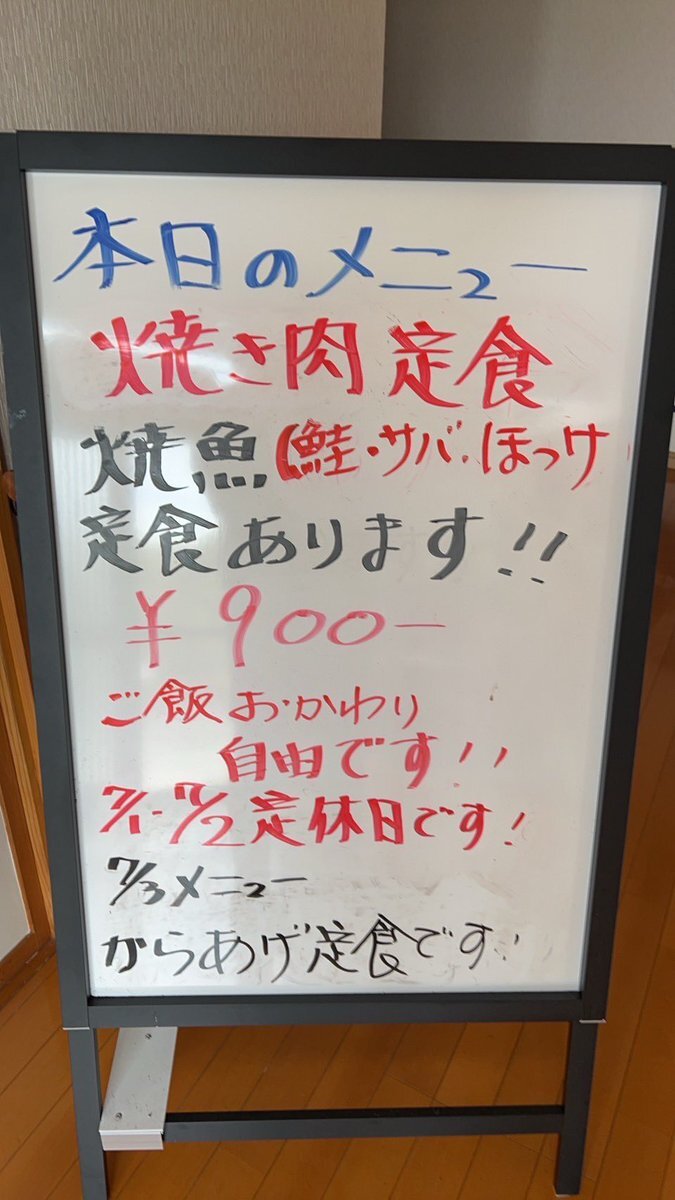 本日のメニュー
焼き肉定食
焼魚(鮭・サバ・ほっけ
定食あります!!
¥900ー
ご飯おかわり
自由です!!
7/1-7/2定休日です!
7/3メニュー
からあげ定食です!